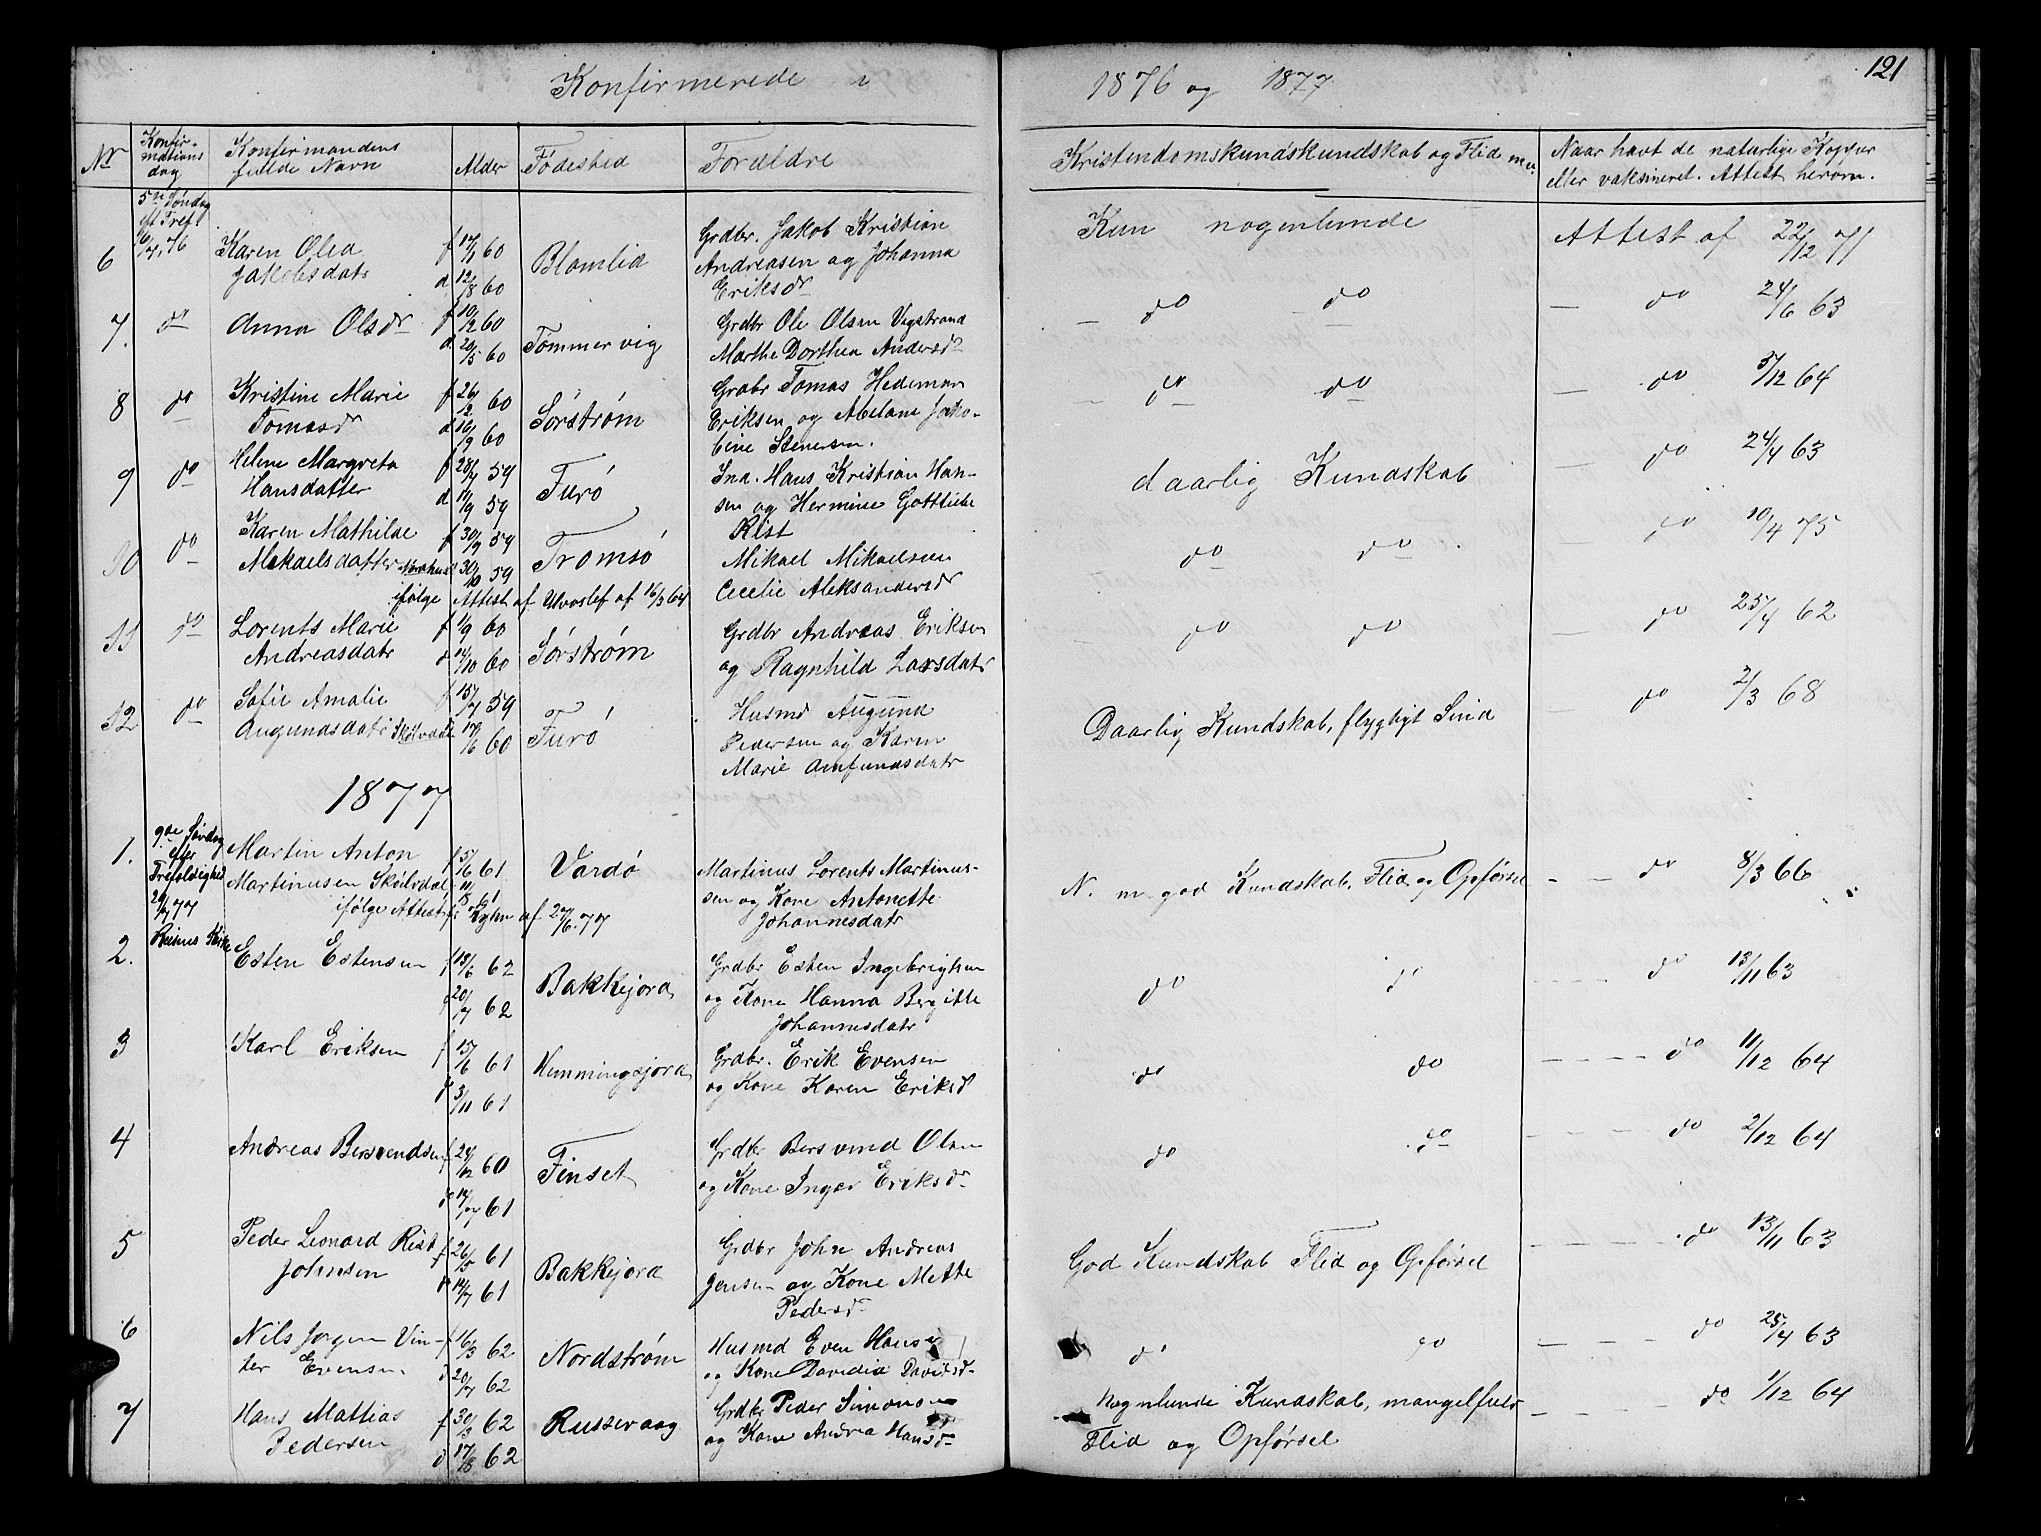 121
Konfirmerede i 1876 og 1877
Nr Konfirmations dag Konfirmandens fulde Navn Alder Fødested Forældre Kristendomskundskundskab og Flid m.v. Naar havt de naturlige Kopper eller vaksineret. Attest herom.
5te Søndag
eft Tref
76
6 Karen Olea f 17/1 60 Blomlid Grdbr. Jakob Kristian Kun nogenlunde Attest af 22/12 71
Jakobsdatr d 12/8 60 Andreasen og Johanna
Eriksdr
7. do Anna Olsdr f 10/2 60 Tømmervig Grdbr Ole Olsen Vigstrand do do do 24/6 63
d 20/5 60 Marthe Dorthea Andersdr
8 do Kristine Marie f 26/2 60 Sørstrøm Grdbr Tomas Hedeman do do do 5/12 64
Tomasdr d 16/9 60 Eriksen og Abelone Jako-
bine Stenersen.
9 do Helene Margreta f 28/7 59 Turø Ind. Hans Kristian Han- daarlig Kundskab do 24/4 63
Hansdatter d 11/9 59 sen og Hermine Gottliebe
Rist
10 do Karen Mathilde f 30/9 59 Tromsø Mikael Mikaelsen do do do 10/4 75
Mikaelsdatter d 30/10 59 Cecelie Aleksandersdr
ifølge Attest af 16/3 64
11 do Lorents Marie f 1/9 60 Sørstrøm Grdbr Andreas Eriksen do do do 25/4 62
Andreasdatr d 14/10 60 og Ragnhild Larsdatr
12 do Sofie Amalie f 15/7 59 Turø Husmd Augund Daarlig Kundskab, flygtigt Sind do 2/3 68
Augundsdatr d 17/6 60 Pedersen og Karen
Marie Amfundsdatr
1877
1. 9de Søndag Martin Anton f 5/6 61 Vardø Martinus Lorents Martinus- N. m. god Kundskab, Flid og Opførsel do 8/3 66
efter Martinusen Skølvdal sen og Kone Antonette
Trefoldighed ifølge Attest fr Lyhn af 27/6.77 Johannesdatr
29/7 77
Kirke
2. Esten Estensen f 13/6 62 Bakkejord Grdbr Esten Ingebrigtsen do do do 13/11 63
d 20/7 62 og Kone Hanna Bergitte
Johannesdatr
3 Karl Eriksen f 15/6 61 Hemmingsjord Grdbr. Erik Evensen do do do 11/12 64
d 3/11 61 og Kone Karen Eriksd
4 Andreas Bersvendsen f 24/12 60 Finset Grdbr Bersvend Olsen do do do 2/12 64
d 14/7 61 og Kone Inger Eriksdr
5 Peder Leonard Rist f 26/5 61 Bakkejord Grdbr John Andreas God Kundskab Flid og Opførsel do 13/11 63
Johnsen d 14/7 61 Jensen og Kone Mette
Pedersdr
6 Nils Jørgen Vin- f 16/3 62 Nordstrøm Husmd Even Hans do do do 25/4 63
ter Evensen d 20/7 62 og Kone Davidia Davidsdr
7 Hans Mattias f 30/3 62 Russevaag Grdbr Peder Simonsen Nogenlunde Kundskab, mangelfuld do 1/12 64
Pedersen d 17/8 62 og Kone Andrea Hansdr Flid og Opførsel